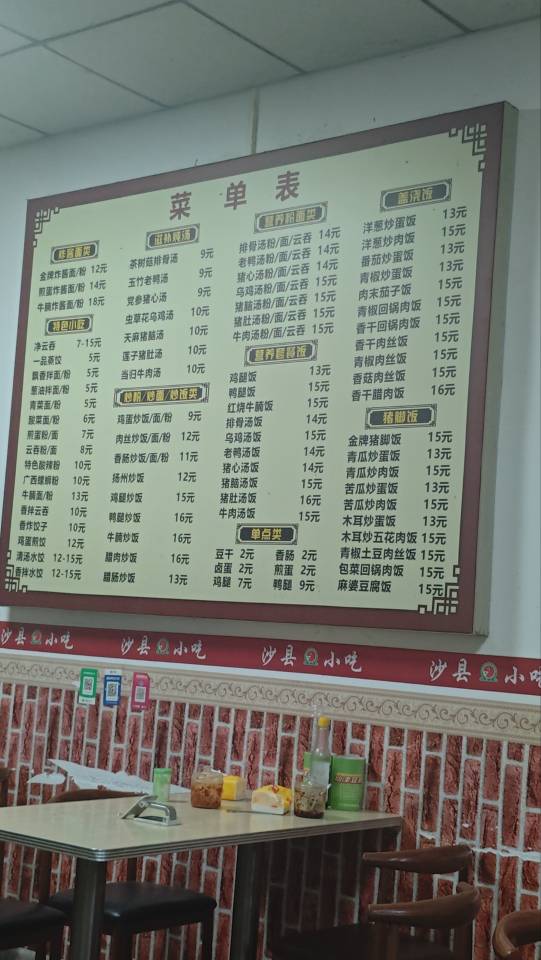 菜单表
炸酱面类
金牌炸酱面/粉 12元
煎蛋炸酱面/粉 14元
牛腩炸酱面/粉 18元
特色小吃
净云吞 7-15元
一品蒸饺 5元
飘香拌面/粉 5元
葱油拌面/粉 5元
青菜面/粉 5元
酸菜面/粉 6元
煎蛋粉/面 7元
云吞粉/面 8元
特色酸辣粉 10元
广西螺蛳粉 10元
牛腩面/粉 13元
香拌云吞 10元
香炸饺子 10元
鸡蛋煎饺 12元
清汤水饺 12-15元
香拌水饺 12-15元
茶树菇排骨汤 9元
玉竹老鸭汤 9元
党参猪心汤 9元
虫草花乌鸡汤 10元
天麻猪脑汤 10元
莲子猪肚汤 10元
当归牛肉汤 10元
炒粉/炒面/炒饭类
鸡蛋炒饭/面/粉 9元
肉丝炒饭/面/粉 12元
香肠炒饭/面/粉 11元
扬州炒饭 12元
鸡腿炒饭 15元
鸭腿炒饭 16元
牛腩炒饭 16元
腊肉炒饭 16元
腊肠炒饭 13元
营养粉面类
排骨汤粉/面/云吞 14元
老鸭汤粉/面/云吞 14元
猪心汤粉/面/云吞 14元
乌鸡汤粉/面/云吞 15元
猪脑汤粉/面/云吞 15元
猪肚汤粉/面/云吞 15元
牛肉汤粉/面/云吞 15元
营养套餐饭
鸡腿饭 13元
鸭腿饭 15元
红烧牛腩饭 15元
排骨汤饭 14元
乌鸡汤饭 15元
老鸭汤饭 14元
猪心汤饭 14元
猪脑汤饭 15元
猪肚汤饭 16元
牛肉汤饭 15元
单点类
豆干 2元 香肠 2元
卤蛋 2元 煎蛋 2元
鸡腿 7元 鸭腿 9元
盖浇饭
洋葱炒蛋饭 13元
洋葱炒肉饭 15元
番茄炒蛋饭 13元
青椒炒蛋饭 13元
肉末茄子饭 15元
青椒回锅肉饭 15元
香干回锅肉饭 15元
香干肉丝饭 15元
青椒肉丝饭 15元
香菇肉丝饭 15元
香干腊肉饭 16元
猪脚饭
金牌猪脚饭 15元
青瓜炒蛋饭 13元
青瓜炒肉饭 15元
苦瓜炒蛋饭 13元
苦瓜炒肉饭 15元
木耳炒蛋饭 13元
木耳炒五花肉饭 15元
青椒土豆肉丝饭 15元
包菜回锅肉饭 15元
麻婆豆腐饭 15元
沙县小吃 沙县小吃 沙县小吃 沙县小吃